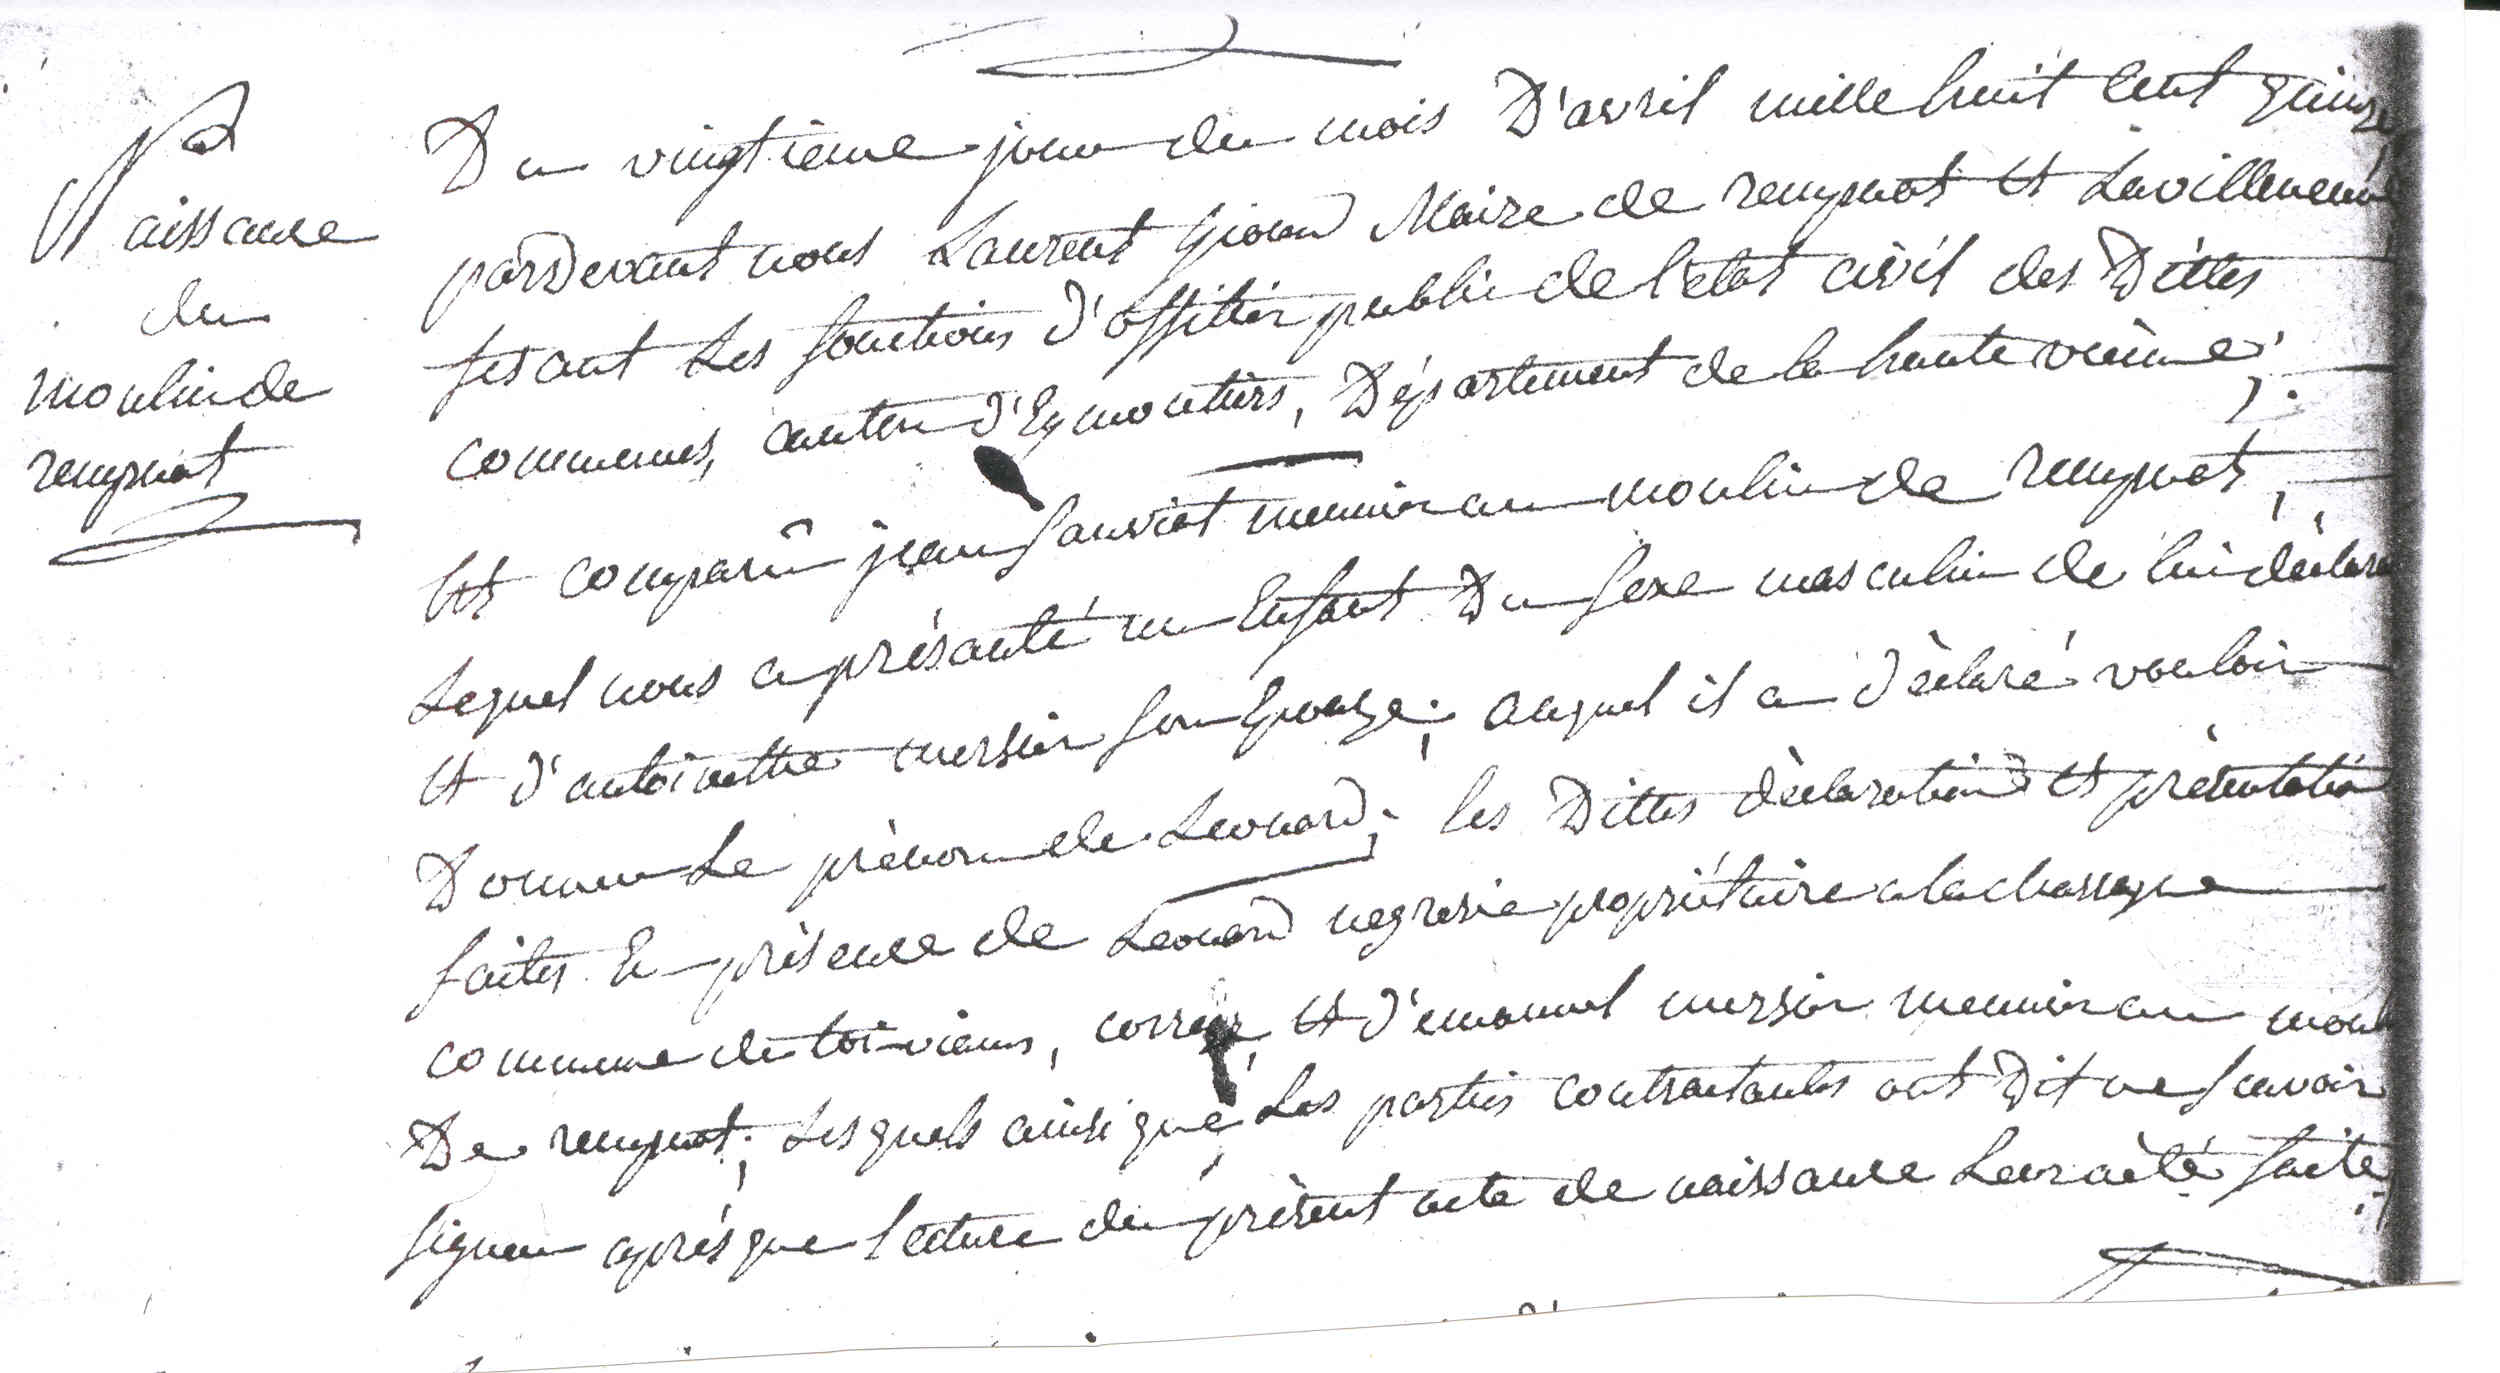 Naissance
du
moulin de
rempnat
Du vingtieme jour du mois D'avril mille huit cent quinze
pardevant nous Laurent Maire de rempnat et Lavilleneuve
fesant Les fonctions d'offitier public de l'etat civil des Dittes
communes, canton d'Eymoutiers, Département de la haute vienne;
Est comparû jean Sauviat meunier au moulin de rempnat,
Lequel nous a présanté un Enfant Du sexe masculin de lui déclaré
et d'antoinette mersier son Epouze; auquel il a déclaré vouloir
Donner Le prénom de Leonard; les Dittes déclaration et présentation
faites En présence de Leonard negrerie propriétaire a la chassagne
commune de toi-viam, correze, et d'emanuel mersier meunier au moulin
De rempnat; Lesquels ainsi que Les parties contractantes ont Dit ne scavoir
signer après que lecture du présent acte de naissance Leur a été faite;